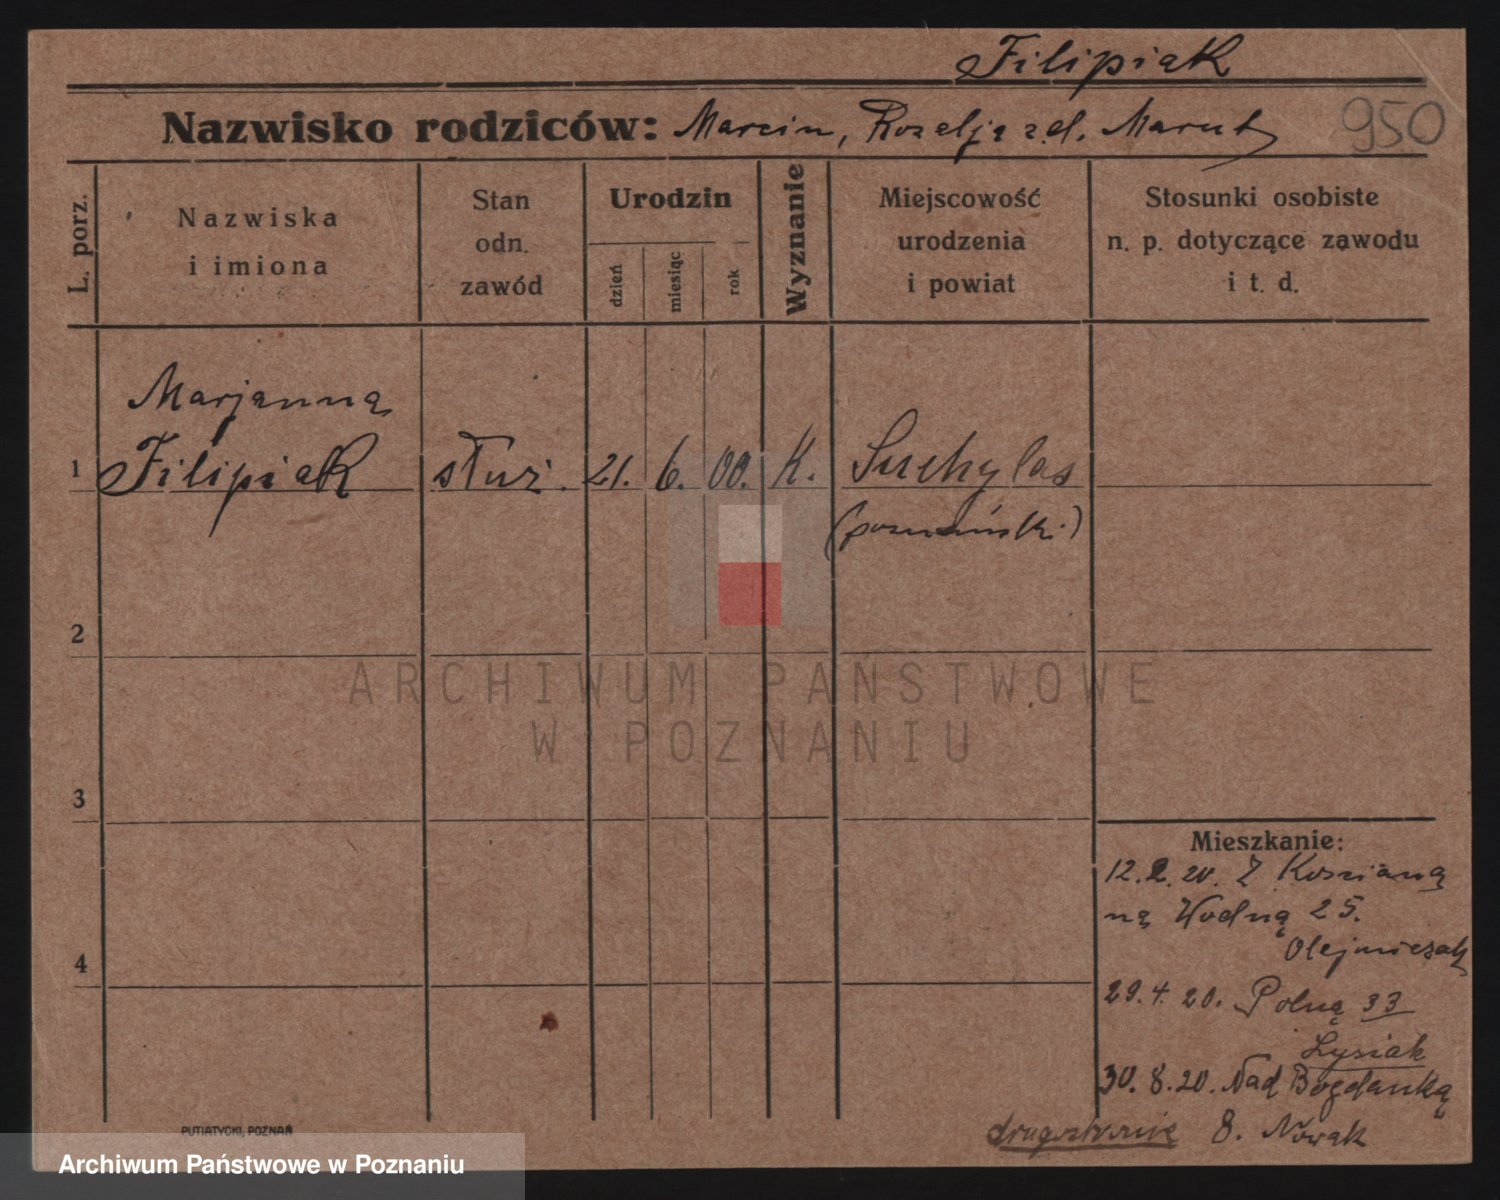 Filipiak
Nazwisko rodziców: Marcin, Rozalja z d. Marut
950
L. porz.
Nazwiska
i imiona
Stan
odn.
zawód
Urodzin
dzień
miesiąc
rok
Wyznanie
Miejscowość
urodzenia
i powiat
Stosunki osobiste
n. p. dotyczące zawodu
i t. d.
Marjanna
1 Filipiak służ. 21. 6. 00. K. Suchylas
(poznański)
2
3
4
Mieszkanie:
12.2.20. Z Kosciana
na Wodna 25.
29.4.20. Polna 33
Łysiak
30.8.20. Nad Bogdanką
8. Nowak
drugostronnie
PUTIATYCKI, POZNAŃ
ARCHIWUM PAŃSTWOWE
W POZNANIU
Archiwum Państwowe w Poznaniu